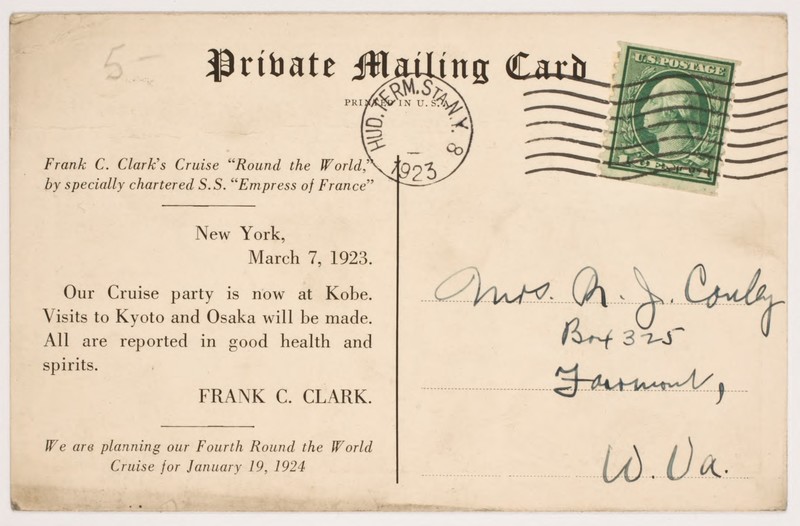 5-
Private Mailing Card
PRINTED IN U.S.A.
HUD. TERM. STA. N.Y. 8
1923
U.S. POSTAGE
Frank C. Clark's Cruise "Round the World,"
by specially chartered S.S. "Empress of France"
New York,
March 7, 1923.
Our Cruise party is now at Kobe.
Visits to Kyoto and Osaka will be made.
All are reported in good health and
spirits.
FRANK C. CLARK.
We are planning our Fourth Round the World
Cruise for January 19, 1924
Mrs. N. J. Conley
Box 325
Fairmont,
W. Va.